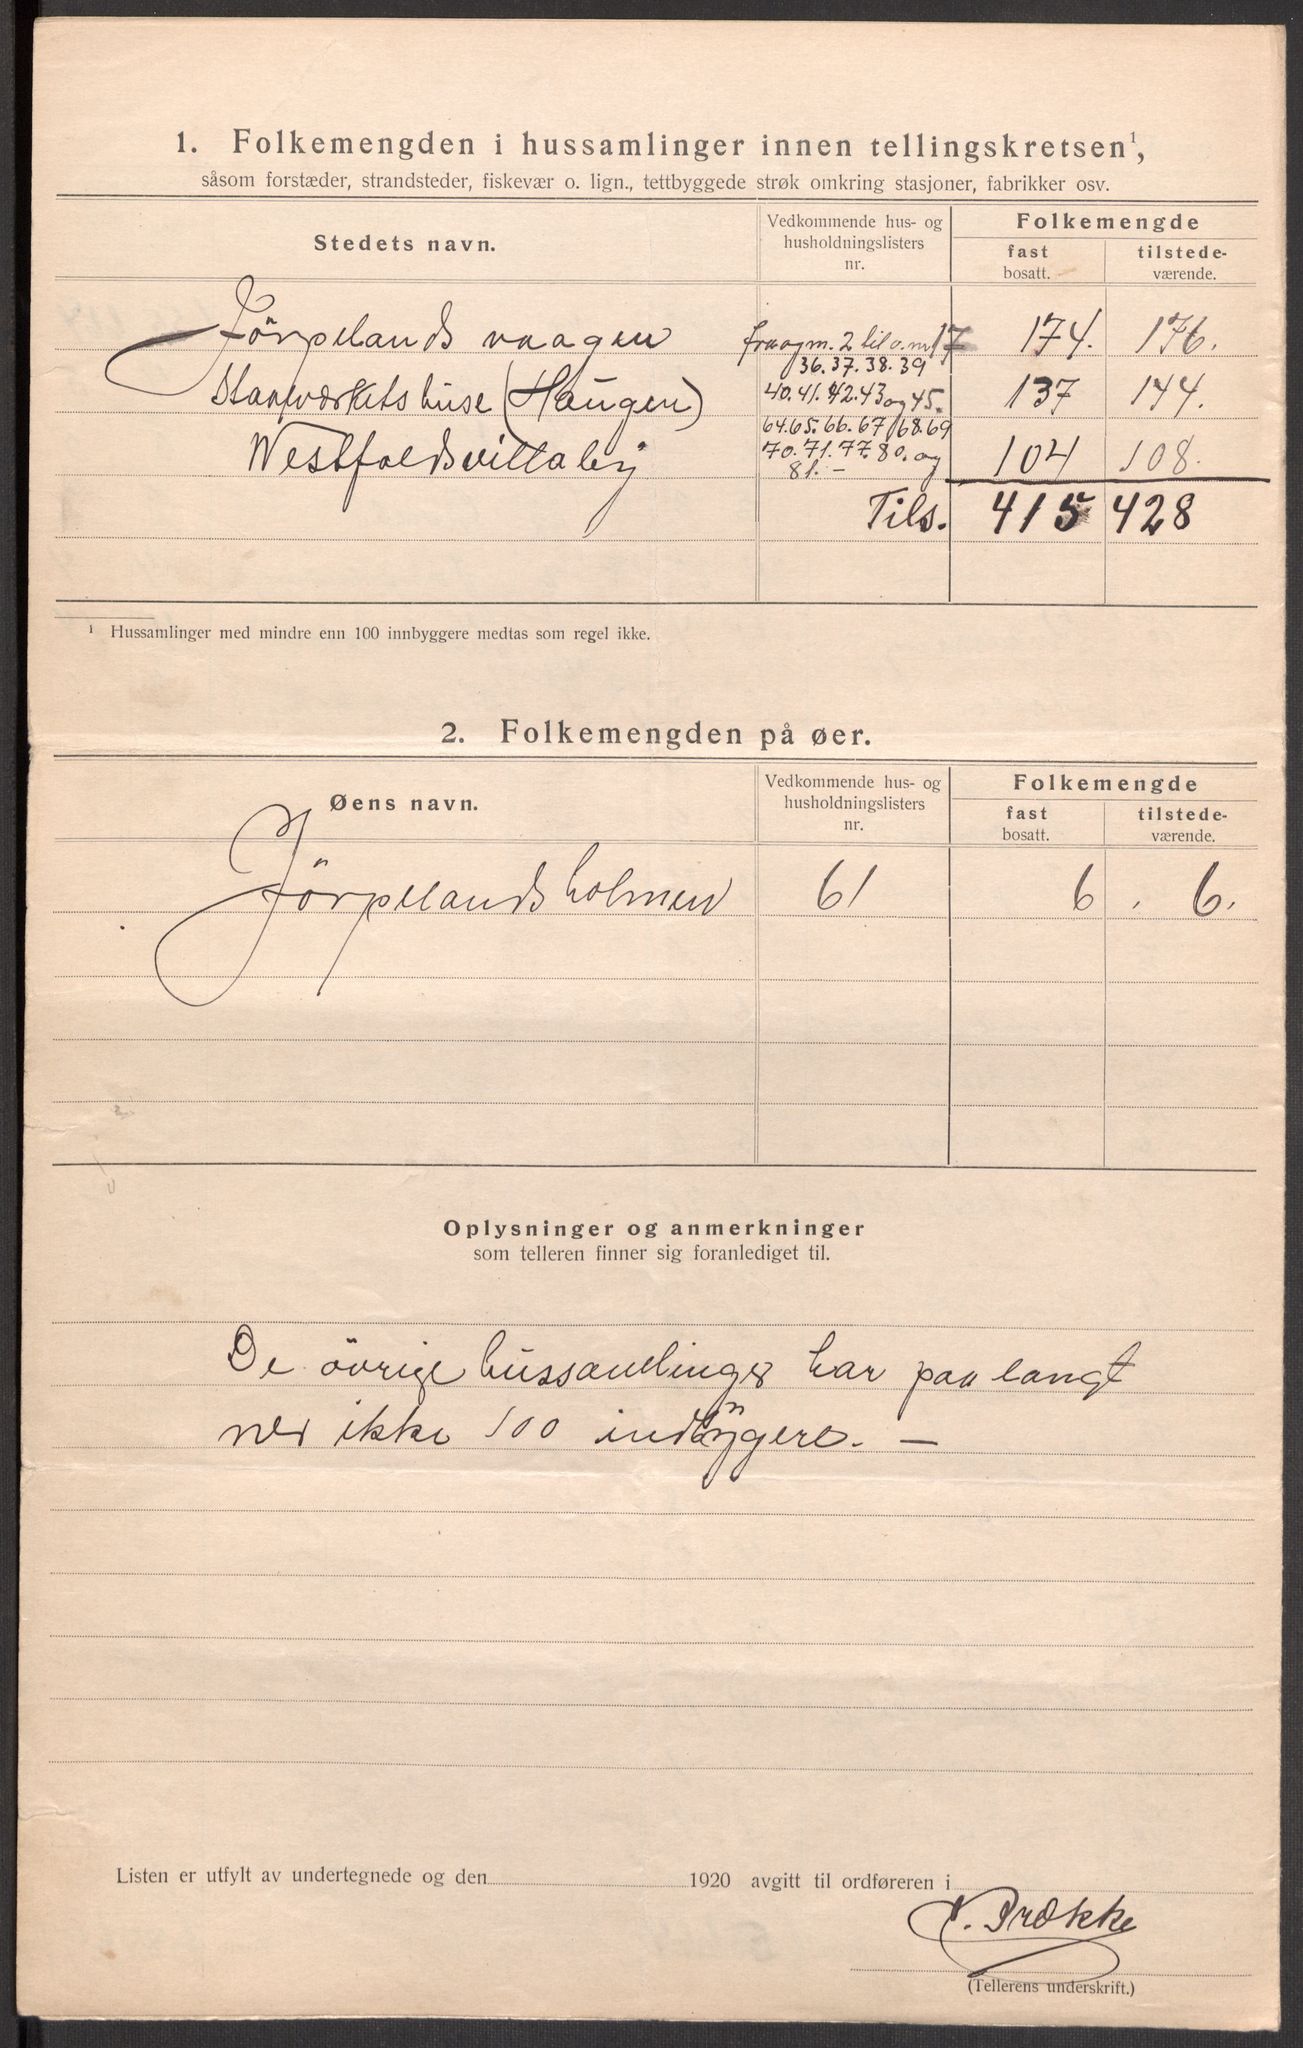 1. Folkemengden i hussamlinger innen tellingskretsen¹,
såsom forstæder, strandsteder, fiskevær o. lign., tettbyggede strøk omkring stasjoner, fabrikker osv.
Stedets navn. Vedkommende hus- og husholdningslisters nr. Folkemengde
fast bosatt. tilstedeværende.
Jörpelandsvaagen fra og m. 2 til o. m. 17 174. 176.
36. 37. 38. 39
Staalværkets huse (Haugen) 40. 41. 42. 43 og 45. 137 144.
64. 65. 66. 67 68. 69
Westfoldsvillaby 70. 71. 77. 80. og 104 108.
81. -
Tils. 415 428
¹ Hussamlinger med mindre enn 100 innbyggere medtas som regel ikke.
2. Folkemengden på øer.
Øens navn. Vedkommende hus- og husholdningslisters nr. Folkemengde
fast bosatt. tilstedeværende.
Jörpelandsholmen 61 6. 6.
Oplysninger og anmerkninger
som telleren finner sig foranlediget til.
De övrige hussamlinger har paa langt
nær ikke 100 indbÿgere. -
Listen er utfylt av undertegnede og den 1920 avgitt til ordføreren i
Prække
(Tellerens underskrift.)